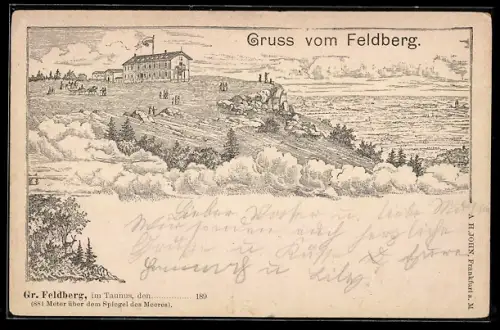 Gruss vom Feldberg.
Lieber Vater u. liebe Mutter
Wir senden euch herzliche
Grüße u. Küsse
u. Lily.
Gr. Feldberg, im Taunus, den ............ 189
(881 Meter über dem Spiegel des Meeres).
A. H. JOHN, Frankfurt a. M.